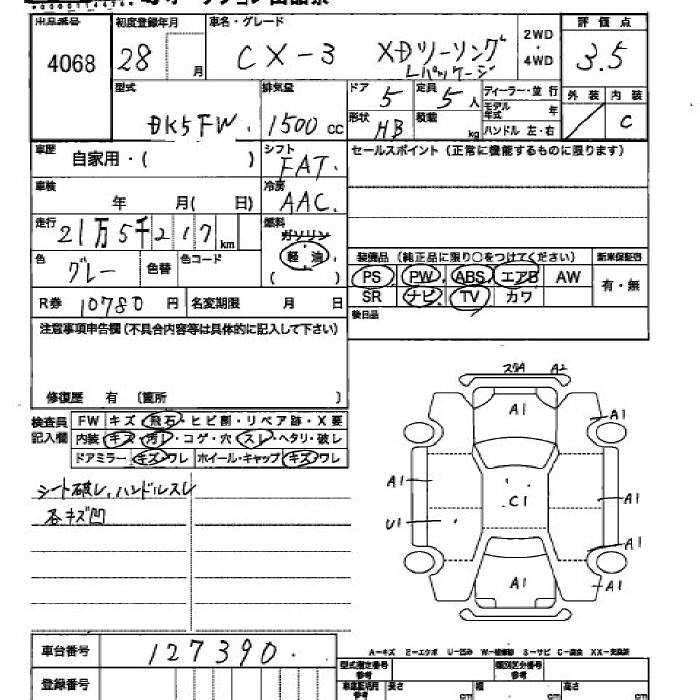 出品番号 初度登録年月 車名・グレード 2WD・4WD 評価点
4068 28 月 CX-3 XDツーリング Lパッケージ 3.5
型式 排気量 ドア 定員 ディーラー・並行 外装 内装
DK5FW. 1500 cc 5 5 人 モデル年式 年 C
形状 HB 積載 kg ハンドル 左・右
車歴 自家用・( ) シフト FAT. セールスポイント (正常に機能するものに限ります)
車検 年 月( 日) 冷房 AAC.
走行 21万5千217 km 燃料 ガソリン
色 グレー 色替 色コード 軽・油 ( ) 装備品 (純正品に限り○をつけてください) 新車保証書
PS PW ABS エアB AW 有・無
R券 10780 円 名変期限 月 日 SR ナビ TV カワ
注意事項申告欄(不具合内容等は具体的に記入して下さい) 後日品
修復歴 有 (箇所 )
検査員記入欄 FW キズ・飛石・ヒビ割・リペア跡・X要
内装 キズ・汚レ・コゲ・穴・スレ・ヘタリ・破レ
ドアミラー キズ・ワレ ホイール・キャップ キズ・ワレ
シート破レ、ハンドルスレ
各キズ凹
A2
A1
A1
A1
A1
C1
A1
U1
A1
A1
A1
車台番号 127390. A-キズ E-エクボ U-凹み W-補修跡 S-サビ C-腐食 XX-交換済
登録番号 型式指定番号 参考 類別区分番号 参考
長さ cm 幅 cm 高さ cm